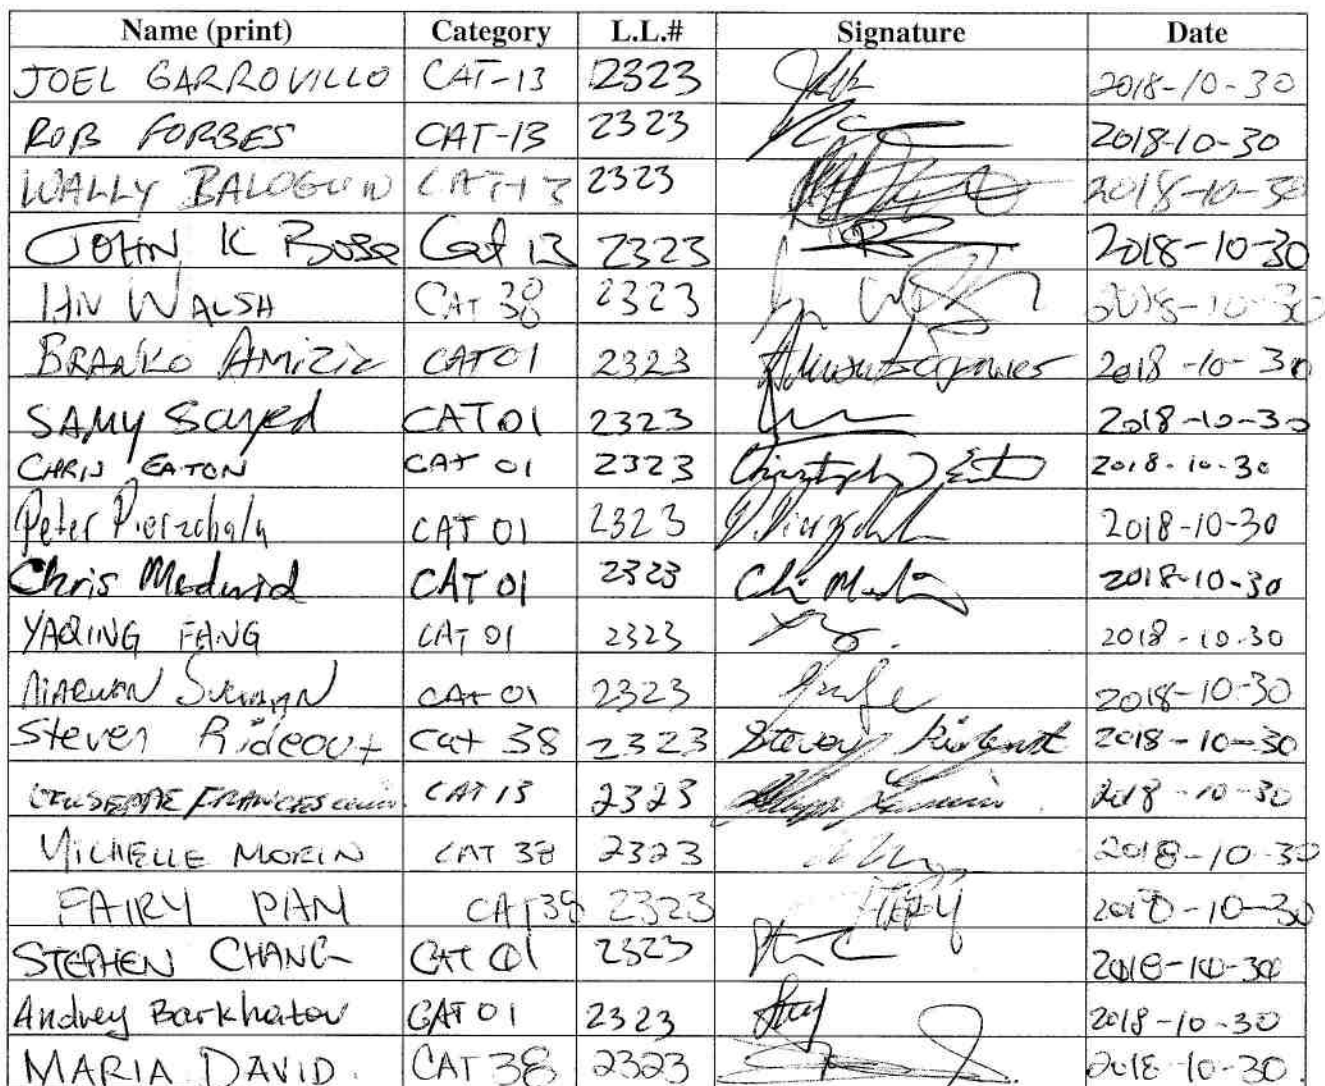 Name (print) Category L.L.# Signature Date
JOEL GARROVILLO CAT-13 2323 2018-10-30
ROB FORBES CAT-13 2323 2018-10-30
WALLY BALOGUN CAT-13 2323 2018-10-30
JOHN K BOSE Cat 13 2323 2018-10-30
IAN WALSH CAT 38 2323 2018-10-30
BRANKO AMIZIC CAT01 2323 2018-10-30
SAMY Sayed CAT01 2323 2018-10-30
CHRIS EATON CAT 01 2323 2018-10-30
Peter Pierzchala CAT 01 2323 2018-10-30
Chris Medwid CAT 01 2323 2018-10-30
YAQING FANG CAT 01 2323 2018-10-30
MARWAN CAT 01 2323 2018-10-30
Steven Rideout Cat 38 2323 Steven Rideout 2018-10-30
GIUSEPPE CAT 13 2323 2018-10-30
MICHELLE MORIN CAT 38 2323 2018-10-30
FAIRY PAN CAT38 2323 FAIRY 2018-10-30
STEPHEN CHANG CAT 01 2323 2018-10-30
Andrey Barkhatov CAT 01 2323 2018-10-30
MARIA DAVID. CAT 38 2323 2018-10-30.